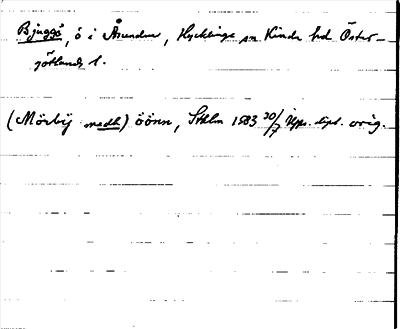 Bjuggö, ö i Årunden, Hycklinge sn Kinda hd Öster-
götlands l.
(Mörby medh) öönn, Sthlm 1583 30/7 Upps. dipl. orig.